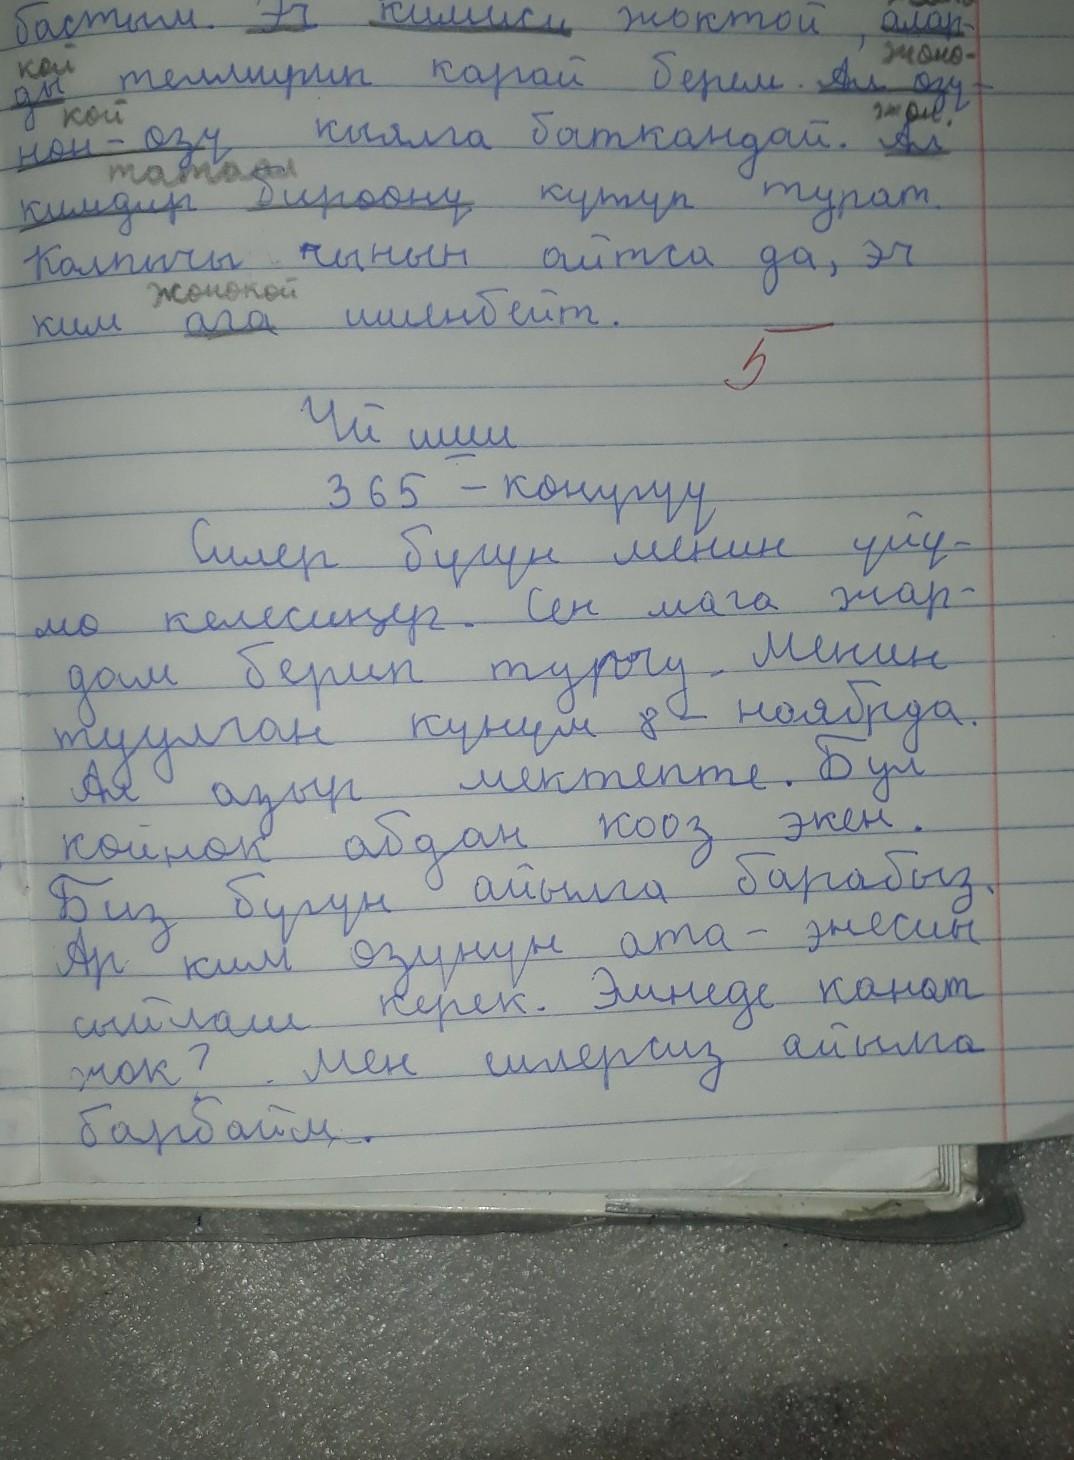 бастым. Эч кимиси жоктой, алар-
кой жоно-
ды телмирип карай берем. Ал озу-
кой жон.
нон-озу кыялга баткандай. Ал
татаал
кимдир бироону кутуп турат.
Калпычы чынын айтса да, эч
жонокой
ким ага ишенбейт.
5
Үй иши
365 - конугуу
Силер бугун менин уйу-
мо келесиңер. Сен мага жар-
дам берип туруу. Менин
туулган кунум 8 - ноябрда.
Ал азыр мектепте. Бул
койнок абдан кооз экен.
Биз бугун айылга барабыз.
Ар ким озунун ата - энесин
сыйлаш керек. Эмнеде канат
жок? Мен силерсиз айылга
барбайм.